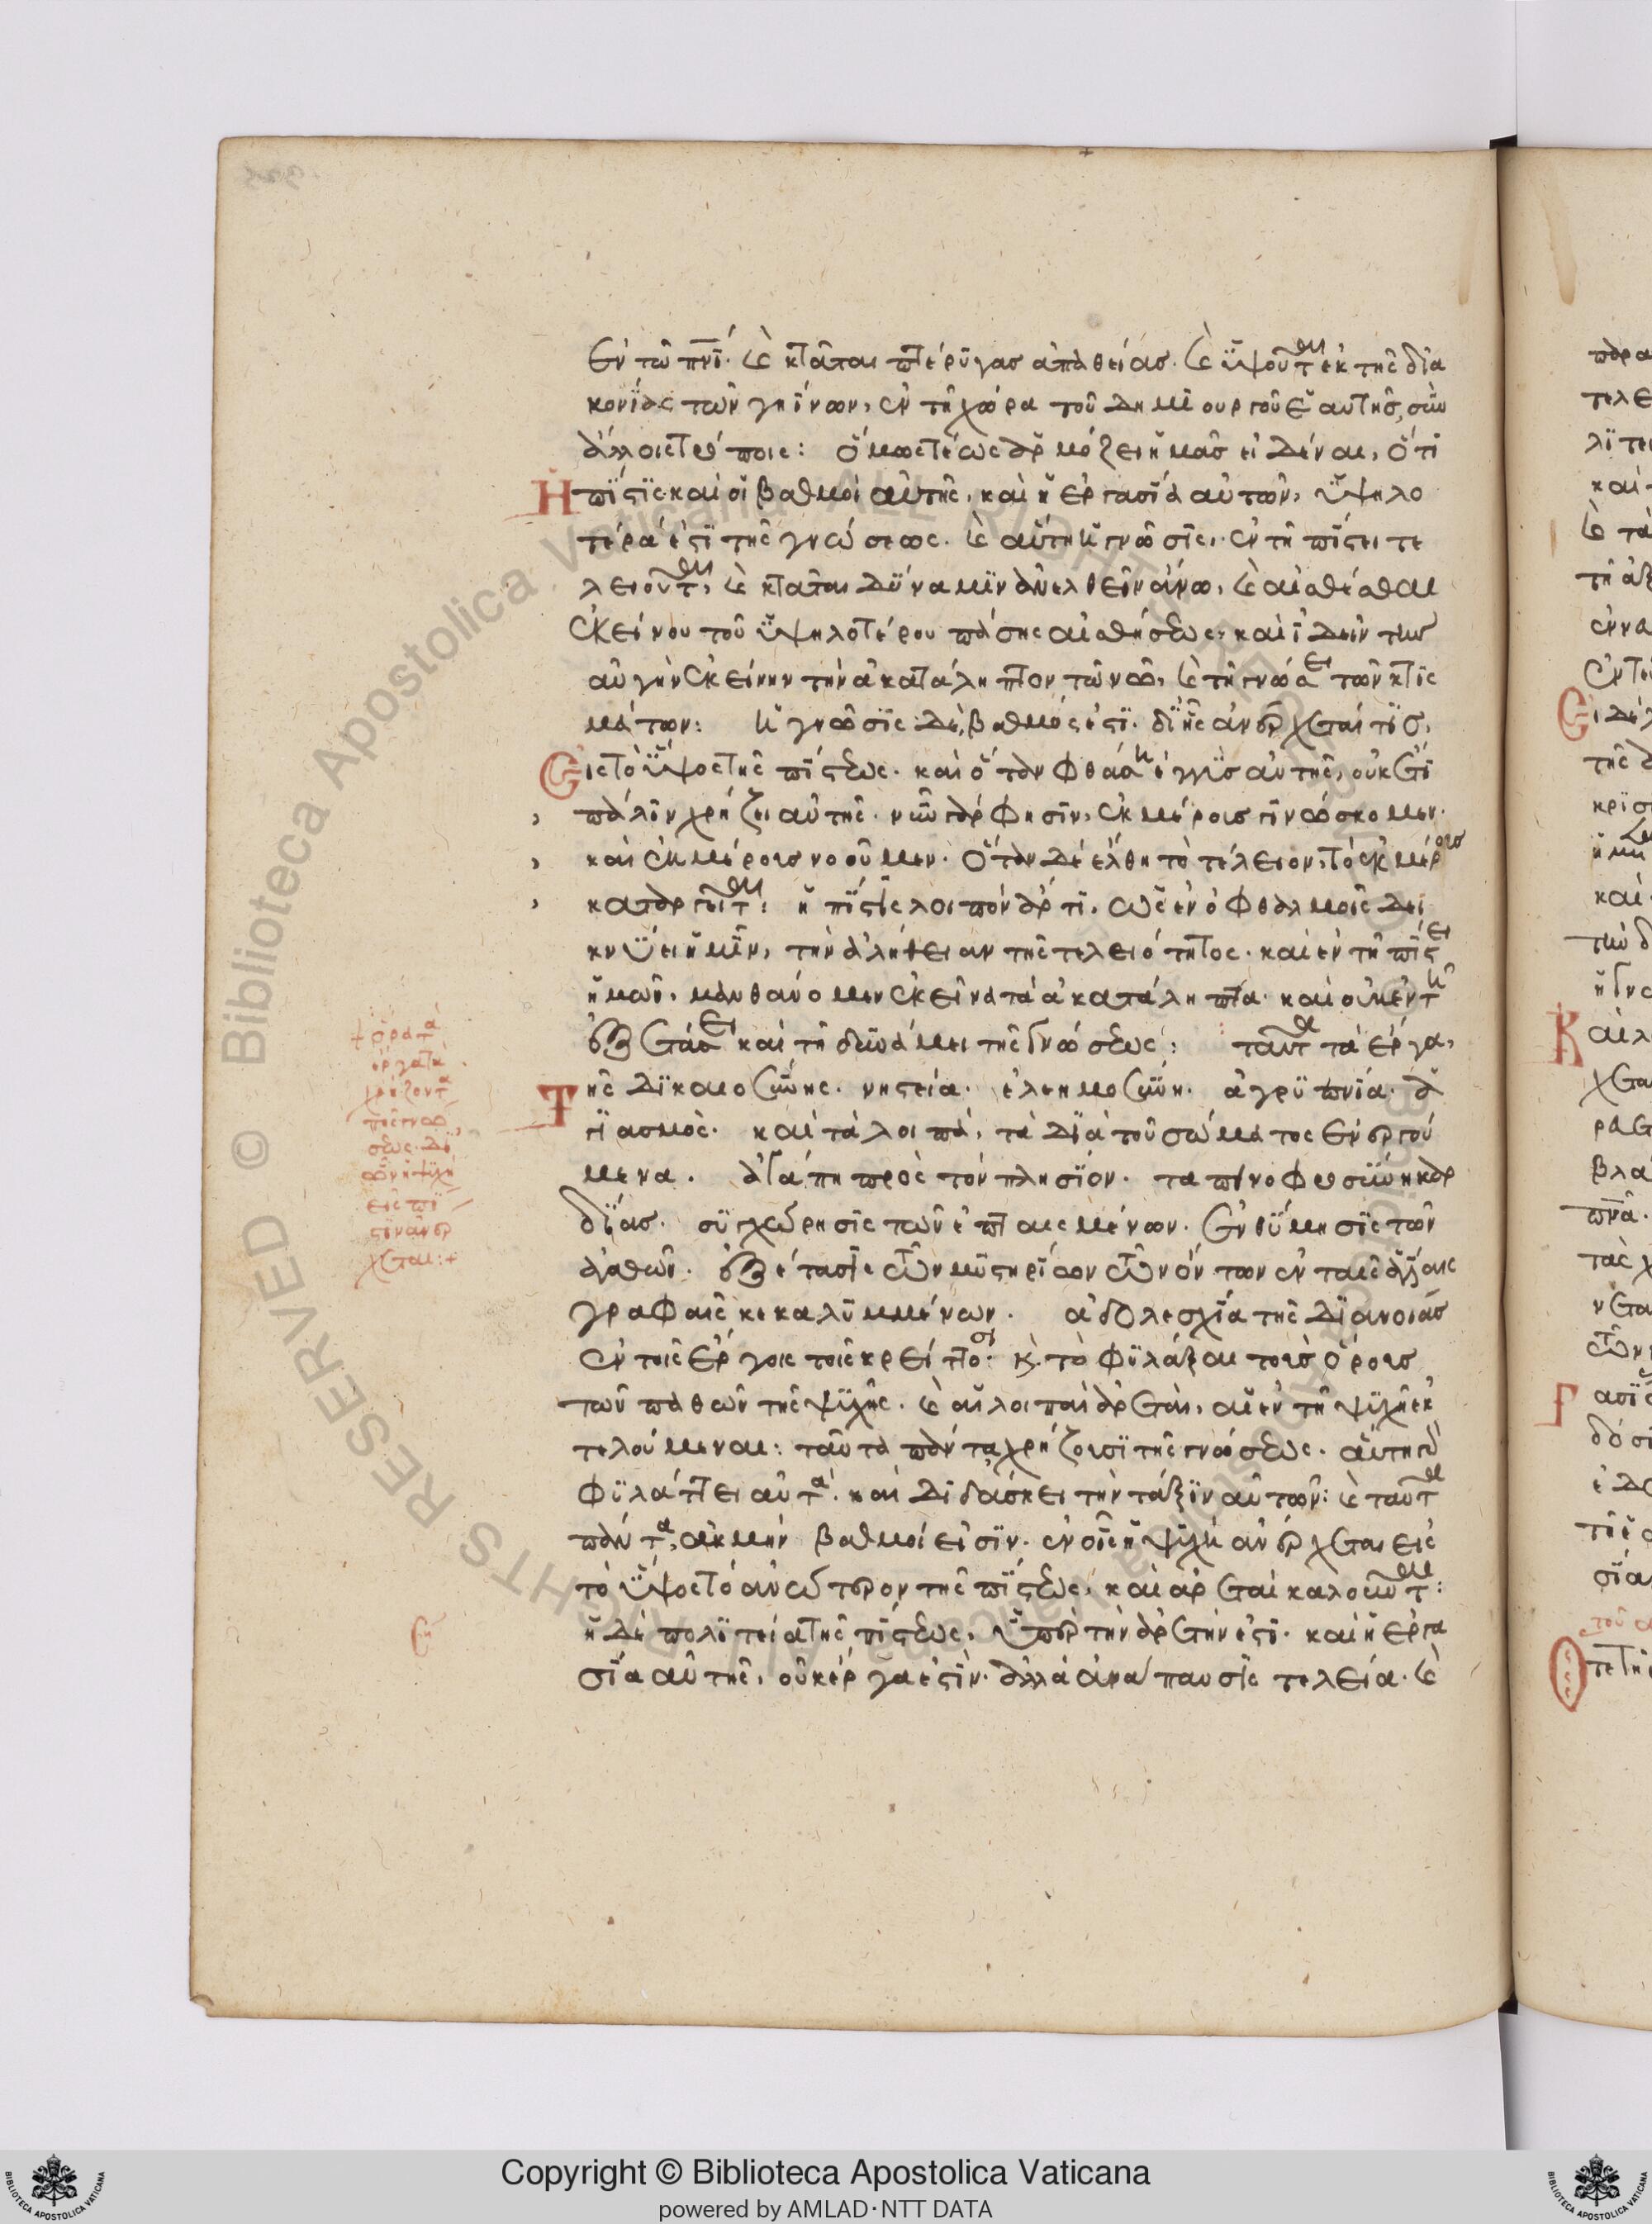 ἐν τῷ πνι. καὶ κτᾶται πτέρυγας ἀπαθείας. καὶ ὑψοῦται ἐκ τῆς δια
κονίας τῶν γηΐνων, ἐν τῇ χώρα τοῦ δημιουργοῦ ἑαυτῆς, σὺν
ἀλλοις τρόποις: ὅμως τέως ἁρμόζει ἡμᾶς εἰδέναι, ὅτι
Ἡ πίστις καὶ οἱ βαθμοὶ αὐτῆς, καὶ ἡ ἐργασία αὐτῶν, ὑψηλο
τέρα ἐστὶ τῆς γνώσεως. καὶ αὕτη ἡ γνῶσις, ἐν τῇ πίστει τε
λειοῦται, καὶ κτᾶται δύναμιν ἀνελθεῖν ἄνω, καὶ αἰσθέσθαι
ἐκείνου τοῦ ὑψηλοτέρου πάσης αἰσθήσεως, καὶ ἰδεῖν τὴν
αὐγὴν ἐκείνην τὴν ἀκατάληπτον τῷ νῷ, καὶ τῇ γνώσει τῶν κτισ
μάτων: ἡ γνῶσις δὲ, βαθμός ἐστι. δι' ἧς ἀνέρχεταί τις,
Εἰς τὸ ὕψος τῆς πίστεως. καὶ ὅταν φθάσῃ ἐγγὺς αὐτῆς, οὐκέτι
πάλιν χρήζει αὐτῆς. νῦν γάρ φησιν, ἐκ μέρους γινώσκομεν.
καὶ ἐκ μέρους νοοῦμεν. ὅταν δὲ ἔλθη τὸ τέλειον, τὸ ἐκ μέρους
καταργεῖται: ἡ πίστις λοιπὸν ἄρτι, ὡς ἐν ὀφθαλμοῖς δει
κνύει ἡμῖν, τὴν ἀλήθειαν τῆς τελειότητος. καὶ ἐν τῇ πίστει
ἡμῶν, μανθάνομεν ἐκεῖνα τὰ ἀκατάληπτα. καὶ οὐκ ἐν τῇ
ἐξετάσει καὶ τῇ δυνάμει τῆς γνώσεως: ταῦτα τὰ ἔργα,
Τῆς δικαιοσύνης. νηστεία. ἐλεημοσύνη. ἀγρυπνία. ἁ
γιασμὸς. καὶ τὰ λοιπὰ, τὰ διὰ τοῦ σώματος ἐνεργού
μενα. ἀγάπη πρὸς τὸν πλησίον. ταπεινοφροσύνη καρ
δίας. συγχώρησις τῶν ἐπταισμένων. ἐνθύμησις τῶν
ἀγαθῶν. ἐξέτασις τῶν μυστηρίων τῶν ὄντων ἐν ταῖς ἁγίαις
γραφαῖς κεκαλυμμένων. ἀδολεσχία τῆς διανοίας
ἐν τοῖς ἔργοις τοῖς κρείττοσι. καὶ τὸ φυλάξαι τοὺς ὅρους
τῶν παθῶν τῆς ψυχῆς. καὶ αἱ λοιπαὶ ἀρεταὶ, αἱ ἐν τῇ ψυχῇ ἐκ
τελούμεναι: ταῦτα πάντα χρήζουσι τῆς γνώσεως. αὕτη γὰρ
φυλάττει αὐτὰ. καὶ διδάσκει τὴν τάξιν αὐτῶν: καὶ ταῦτα
πάντα, ἀκμὴν βαθμοί εἰσιν. ἐν οἷς ἡ ψυχὴ ἀνέρχεται εἰς
τὸ ὕψος τὸ ἀνώτερον τῆς πίστεως. καὶ ἀρεταὶ καλοῦνται:
ἡ δὲ πολιτεία τῆς πίστεως, ὑπὲρ τὴν ἀρετήν ἐστι. καὶ ἡ ἐργα
σία αὐτῆς, οὐκ ἔργα ἐστὶν. ἀλλὰ ἀνάπαυσις τελεία. καὶ
+ ὅρα τὰ
ἔργα τὰ
χρήζοντα
τῆς γνώ
σεως. δι'
ὧν ἡ ψυχὴ
εἰς πί
στιν ἀνέρ
χεται:+